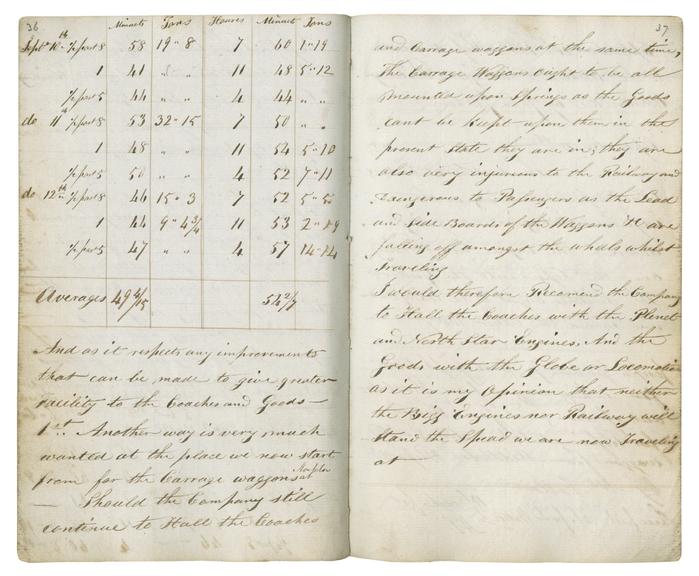 36
Minuets Tons Houres Minuets Tons
Sept 10th ½ past 8 58 19 " 8 7 60 1 " 19
1 41 " " 11 48 5 " 12
½ past 5 44 " " 4 44 " "
do 11th ½ past 8 53 32 " 15 7 50 " "
1 48 " " 11 54 5 " 10
½ past 5 50 " " 4 52 7 " 11
do 12th ½ past 8 46 15 " 3 7 52 5 " 5
1 44 9 " 4¾ 11 53 2 " 19
½ past 5 47 " " 4 57 14 " 14
Averages 49
And as it respects any improvements
that can be made to give greater
facility to the Coaches and Goods —
1st. Another way is very much
wanted at the place we now start
from for the Carrage waggons at
— Should the Company still
continue to Hall the Coaches
37
and Carrage waggons at the same time,
The Carrage Waggons ought to be all
mounted upon Springs as the Goods
cant be kept upon them in the
present state they are in; they are
also very injurious to the Railway and
dangerous to Passengers as the Lead
and Side Boards of the Waggons &c are
falling off amongst the wheels whilst
Traveling
I would therefore Recomend the Company
to Hall the Coaches with the Planet
and North Star Engines. And the
Goods with the Globe or Locomotion
as it is my Opinion that neither
the Bigg Engines nor Railway will
stand the Spead we are now Traveling
at —